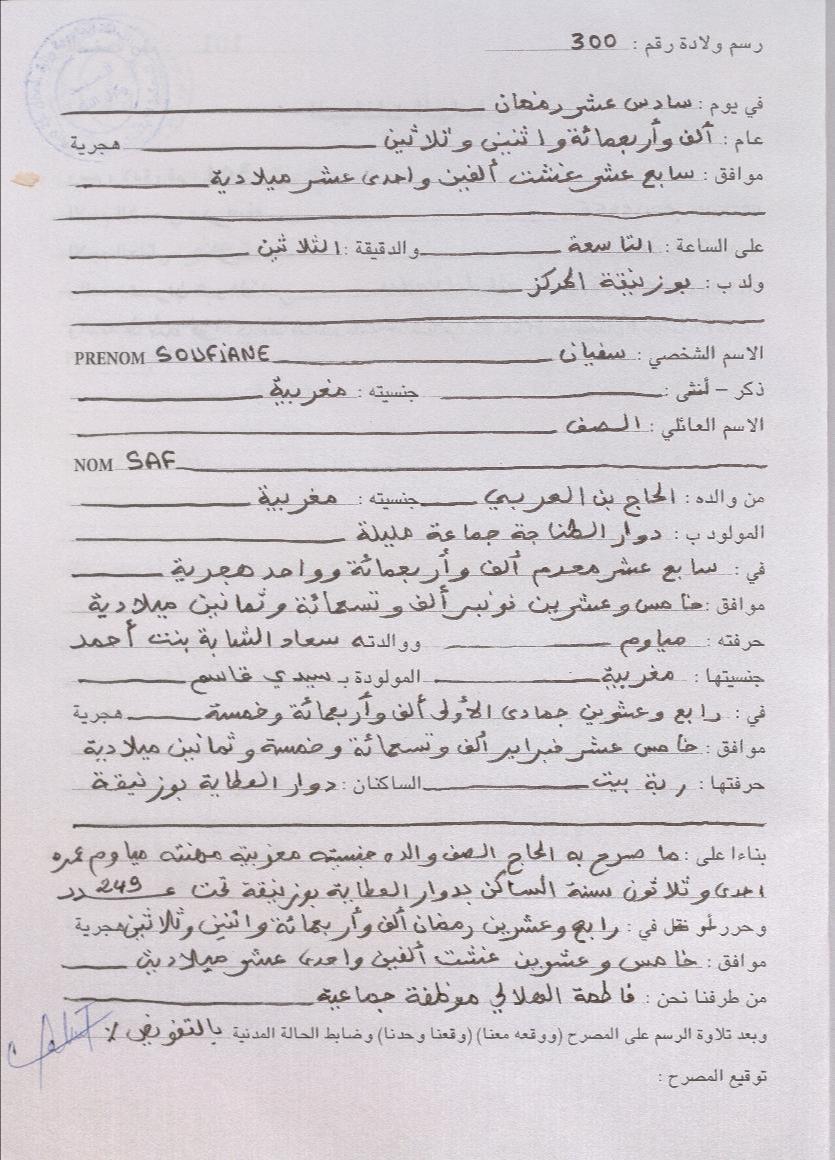 رسم ولادة رقم : 300
في يوم : سادس عشر رمضان
عام : ألف وأربعمائة واثنين وثلاثين هجرية
موافق : سابع عشر غشت ألفين واحدى عشر ميلادية
على الساعة : التاسعة والدقيقة : الثلاثين
ولد ب : بوزنيقة المركز
الاسم الشخصي : سفيان PRENOM SOUFIANE
ذكر – أنثى : جنسيته : مغربية
الاسم العائلي : الصف
NOM SAF
من والده : الحاج بن العربي جنسيته : مغربية
المولود ب : دوار الطناجة جماعة مليلة
في : سابع عشر محرم ألف وأربعمائة وواحد هجرية
موافق : خامس وعشرين نونبر ألف وتسعمائة وثمانين ميلادية
حرفته : مياوم ووالدته سعاد الشابة بنت أحمد
جنسيتها : مغربية المولودة بـ سيدي قاسم
في : رابع وعشرين جمادى الأولى ألف وأربعمائة وخمسة هجرية
موافق : خامس عشر فبراير ألف وتسعمائة وخمسة وثمانين ميلادية
حرفتها : ربة بيت الساكنان : دوار العطاية بوزنيقة
بناءا على : ما صرح به الحاج الصف والده جنسيته مغربية مهنته مياوم عمره
احدى وثلاثون سنة الساكن بدوار العطاية بوزنيقة تحت عدد 249
وحرر أو نقل في : رابع وعشرين رمضان ألف وأربعمائة واثنين وثلاثين هجرية
موافق : خامس وعشرين غشت ألفين واحدى عشر ميلادية
من طرفنا نحن : فاطمة الهلالي موظفة جماعية
وبعد تلاوة الرسم على المصرح (ووقعه معنا) (وقعنا وحدنا) وضابط الحالة المدنية بالتفويض ./.
توقيع المصرح :